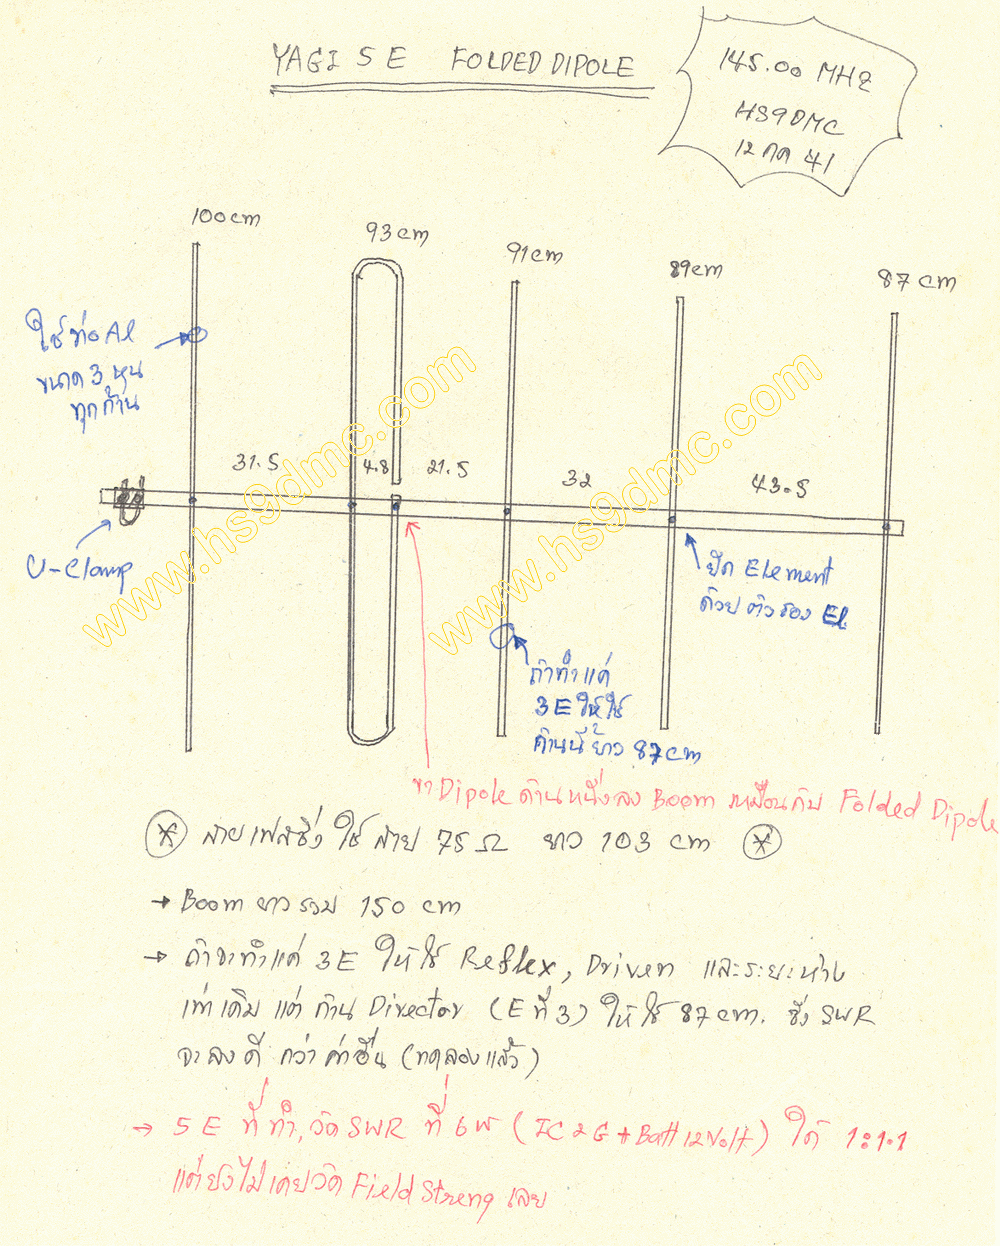 YAGI 5 E FOLDED DIPOLE
145.00 MHz
HS9DMC
12 กค 41
100cm
93cm
91cm
89cm
87cm
ใช้ท่อ Al
ขนาด 3 หุน
ทุกก้าน
31.5
4.8
21.5
32
43.5
U-Clamp
ยึด Element
ด้วย ตัวรอง El.
ถ้าทำแค่
3E ให้ใช้
ก้านนี้ยาว 87cm
ขา Dipole ด้านหนึ่งลง Boom เหมือนกับ Folded Dipole
* สายเฟสซิ่ง ใช้ สาย 75 Ω ยาว 103 cm *
→ Boom ยาวรวม 150 cm
→ ถ้าจะทำแค่ 3E ให้ใช้ Reflex, Driven และระยะห่าง
เท่าเดิม แต่ ก้าน Director (E ที่ 3) ให้ใช้ 87cm. ซึ่ง SWR
จะลงดี กว่าค่าอื่น (ทดลองแล้ว)
→ 5 E ที่ทำ, วัด SWR ที่ 6W (IC2G + Batt 12Volt) ได้ 1:1.1
แต่ยังไม่เคยวัด Field Streng เลย
www.hs9dmc.com
www.hs9dmc.com